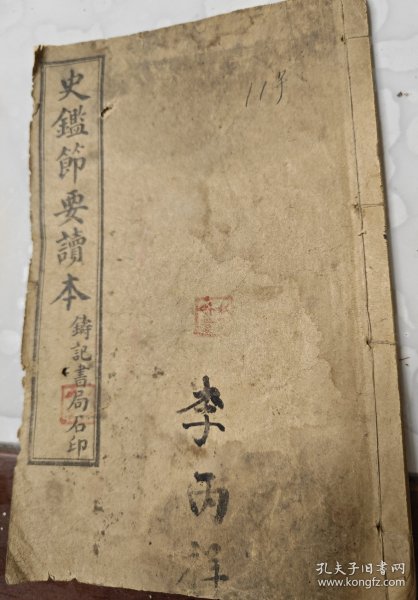 史鑑節要讀本
鋳記書局石印
11号
李丙祥
孔夫子旧书网
www.kongfz.com